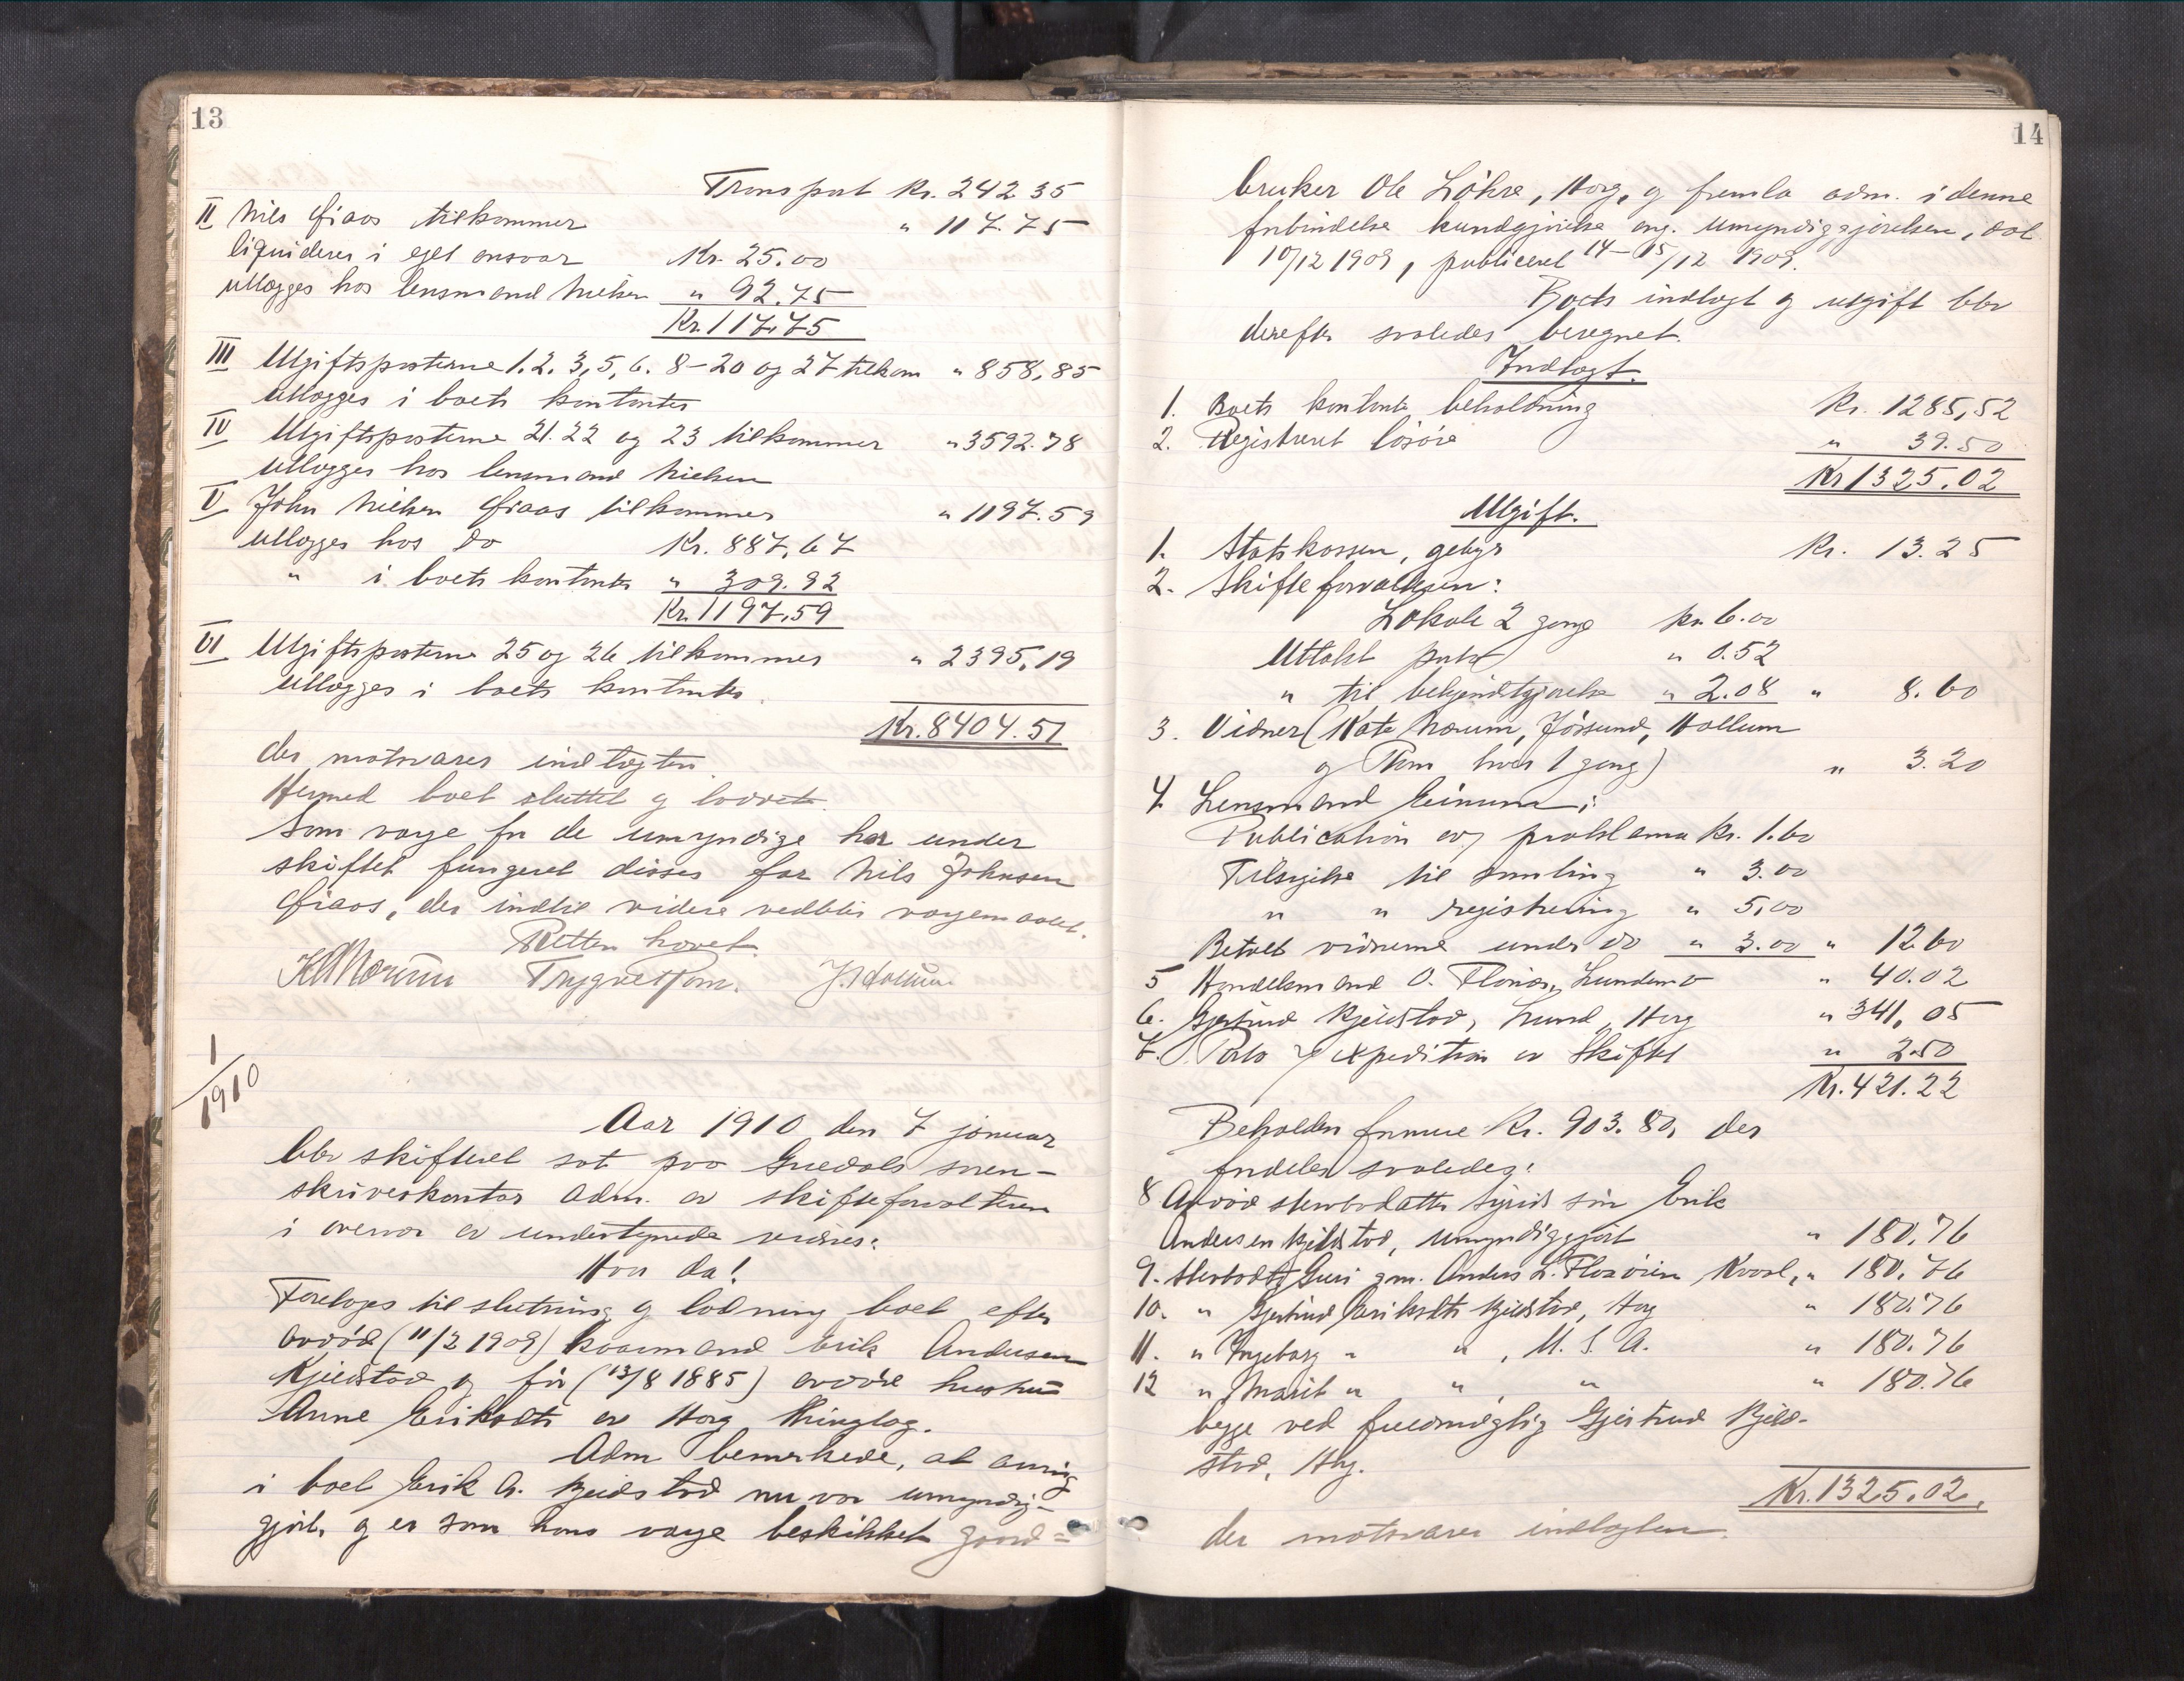 13
Transport Kr. 242.35
II Nils Giaas tilkommer " 117.75
liquideres i eget ansvar Kr. 25.00
utlægges hos lensmand Nielsen " 92.75
Kr. 117.75
III Utgiftsposterne 1. 2. 3, 5, 6. 8-20 og 27 tilkom " 858,85
utlægges i boets kontanter
IV Utgiftsposterne 21. 22 og 23 tilkommer " 3592.78
utlægges hos lensmand Nielsen
V John Nielsen Giaas tilkommer " 1197.59
utlægges hos do Kr. 887,67
" i boets kontanter " 309.92
Kr. 1197,59
VI Utgiftsposterne 25 og 26 tilkommer " 2395,19
utlægges i boets kontanter.
Kr. 8404.51
der motsvarer indtægten.
Hermed boet sluttet og loddet.
Som verge for de umyndige har under
skiftet fungeret disses far Nils Johnsen
Giaas, der indtil videre vedblir vergemaalet.
Retten hævet.
K Mærum Trygve Tom. J. Hollum
1/1910
Aar 1910 den 7 januar
blev skifteret sat paa Guldals soren-
skriverkontor adm. av skifteforvalteren
i overvær av undertegnede vidner:
Hvor da!
Foretoges til slutning og lodning boet efter
avdød (11/2 1909) kaarmand Erik Andersen
Kjeldstad og før (13/8 1885) avdøde hustru
Anne Eriksdtr av Horg thinglag.
Adm bemerkede, at arving
i boet Erik A. Kjeldstad nu var umyndig-
gjort, og er som hans verge beskikket gaard=
14
bruker Ole Løhre, Horg, og fremla adm. i denne
forbindelse kundgjørelse ang. umyndiggjørelsen, dat
10/12 1909, publiceret 14-15/12 1909.
Boets indtægt og utgift blev
derefter saaledes beregnet.
Indtægt.
1. Boets kontante beholdning Kr. 1285,52
2. Registreret løsøre " 39.50
Kr 1325.02
Utgift.
1. Statskassen, gebyr Kr. 13.25
2. Skifteforvalteren:
Lokale 2 gange kr. 6.00
Uttalt porto " 0.52
" til bekjendtgjørelse " 2.08 " 8.60
3. Vidner (Kate Mærum, Jøssund, Hollum
og Tom hver 1 gang) " 3.20
4. Lensmand Einum:
Publication av proklama Kr. 1.60
Tilsigelse til samling " 3.00
" " registrering " 5,00
Betalt vidnerne under do " 3.00 " 12.60
5 Handelsmand O. Flaaøien, Lundemo " 40.02
6. Gjertrud Kjeldstad, Lund, Horg " 341,05
7. Porto og expedition av Skiftet " 2.50
Kr. 421.22
Beholden formue Kr. 903.80, der
fordeles saaledes:
8 Avdød stervbodatter Sigrids søn Erik
Andersen Kjeldstad, umyndiggjort " 180.76
9. Stervbodtr Guri gm. Anders L. Flaaøien Kvaal, " 180.76
10. " Gjertrud Eriksdtr Kjeldstad, Horg " 180.76
11. " Ingeborg " " , U. S. A. " 180.76
12 " Marit " " , " " 180.76
begge ved fuldmægtig Gjertrud Kjeld-
stad, Horg.
Kr. 1325.02.
der motsvarer indtægten.